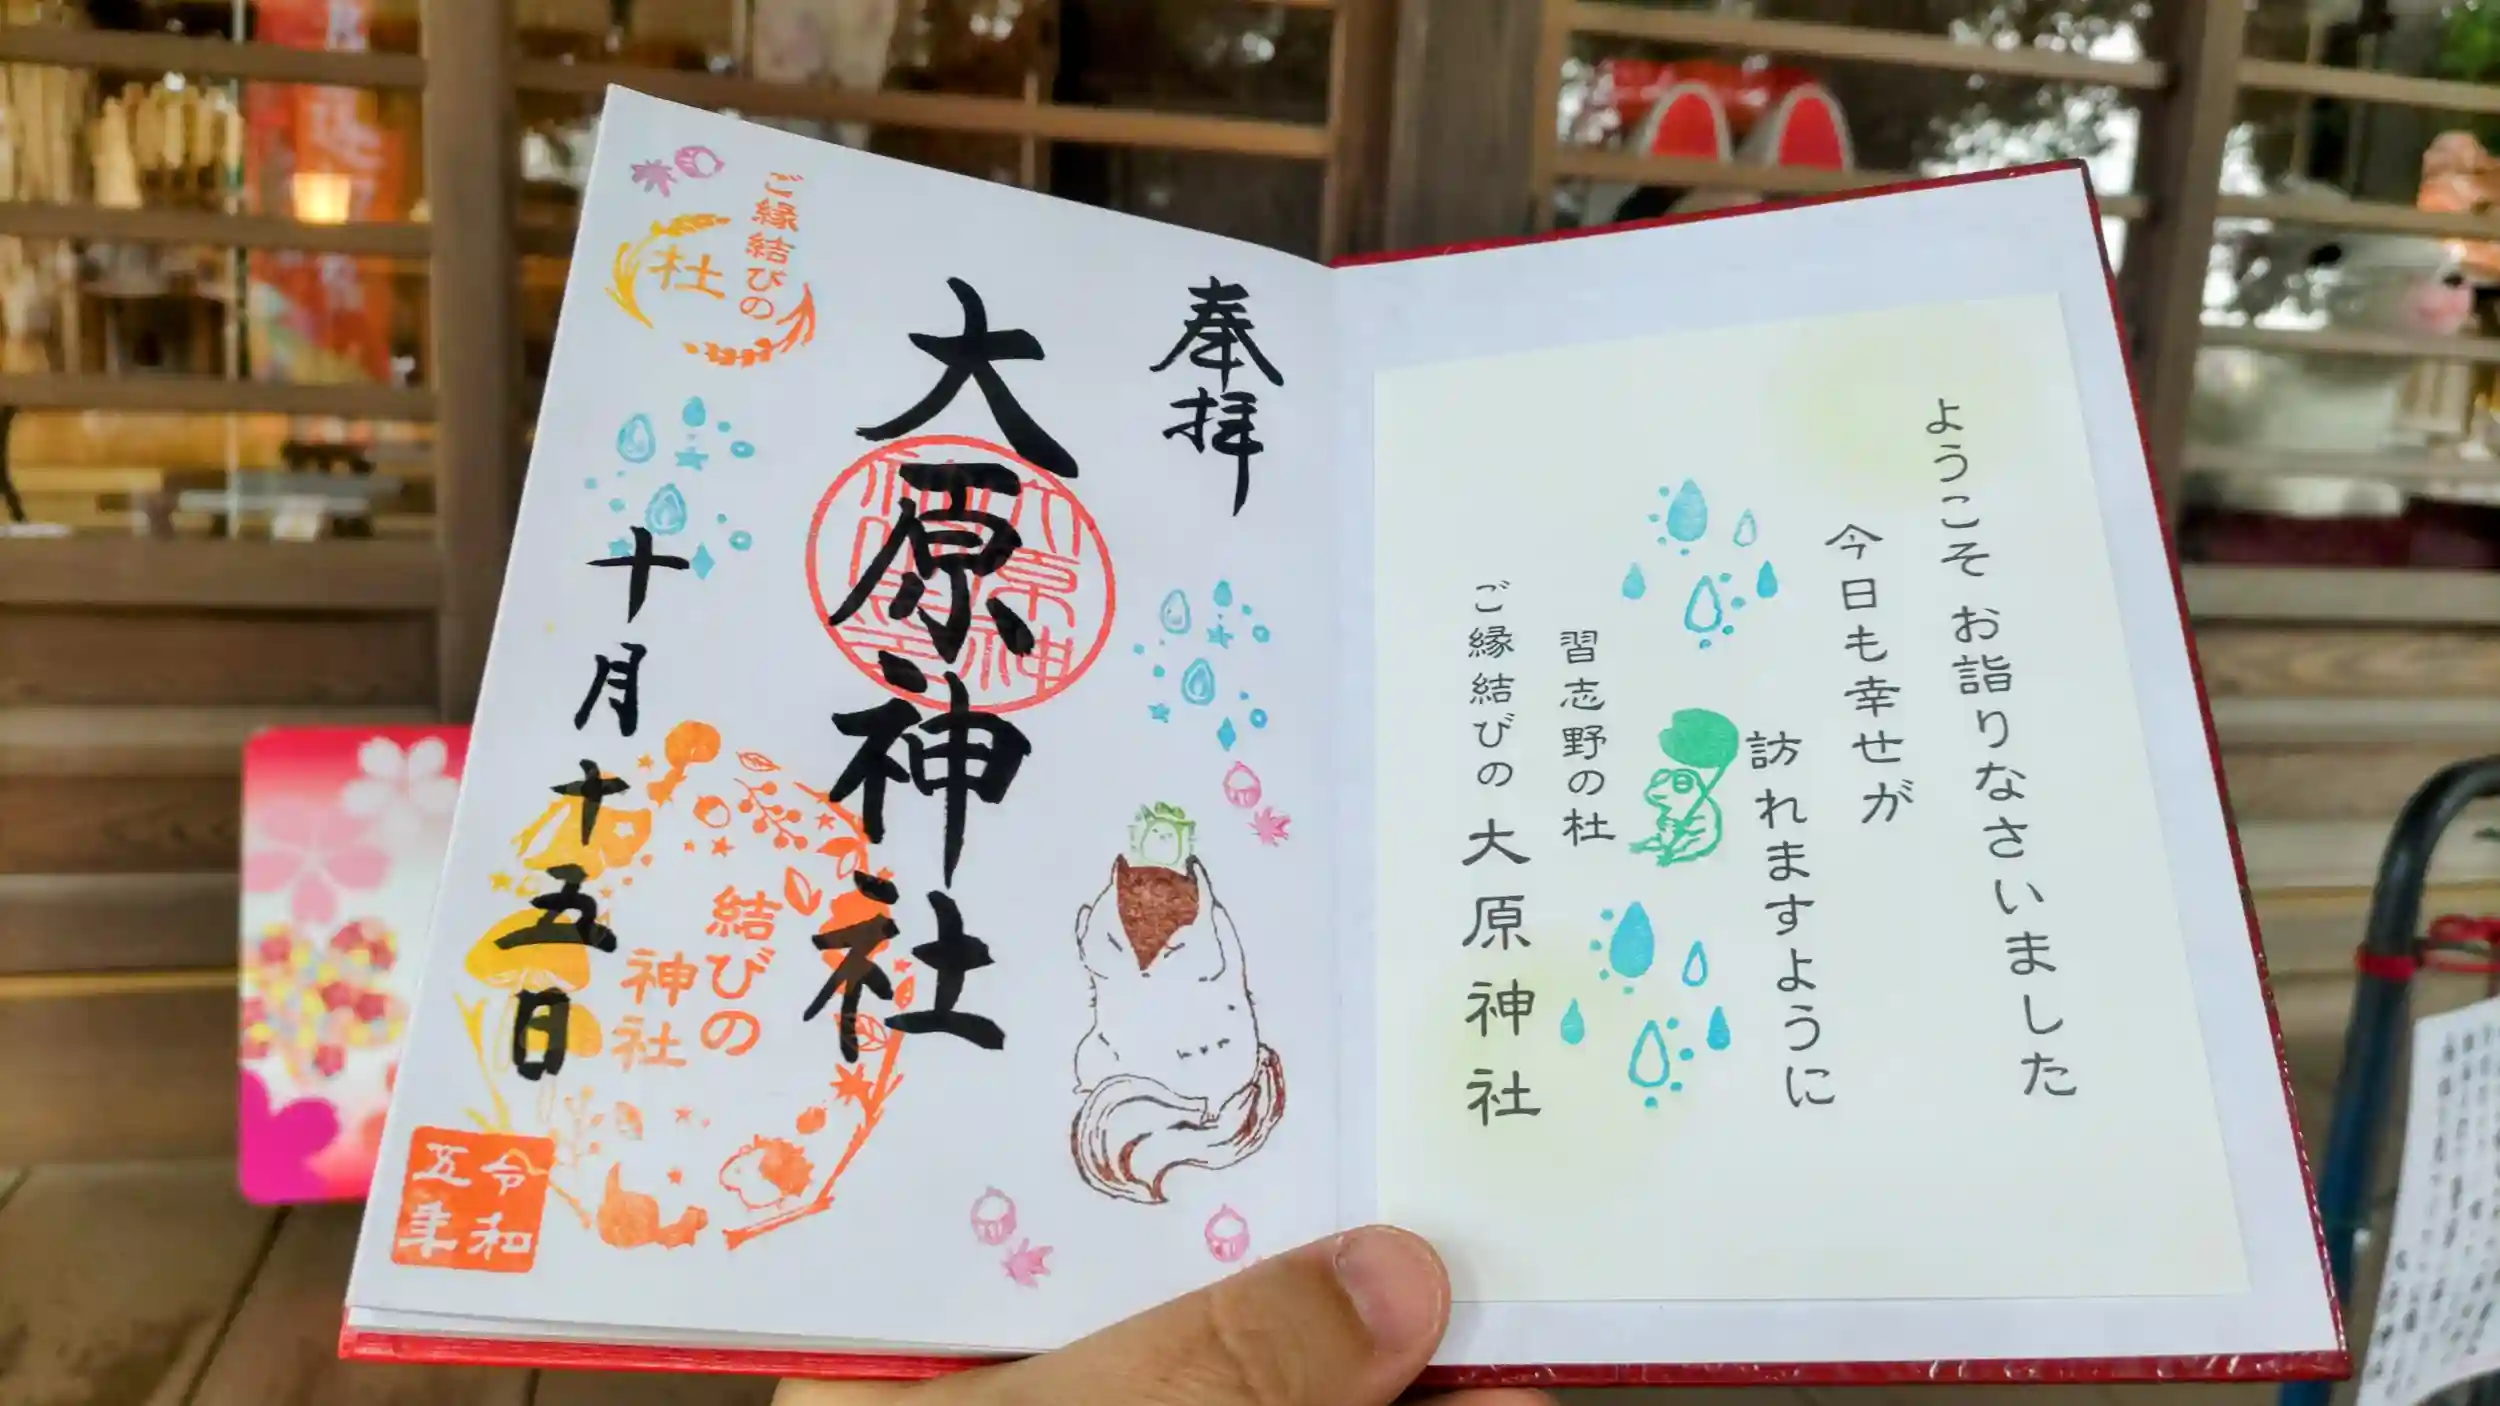 ようこそ お詣りなさいました
今日も幸せが
訪れますように
習志野の杜
ご縁結びの 大原神社
奉拝
大原神社
十月十五日
ご縁結びの
杜
結びの
神社
令和
五年